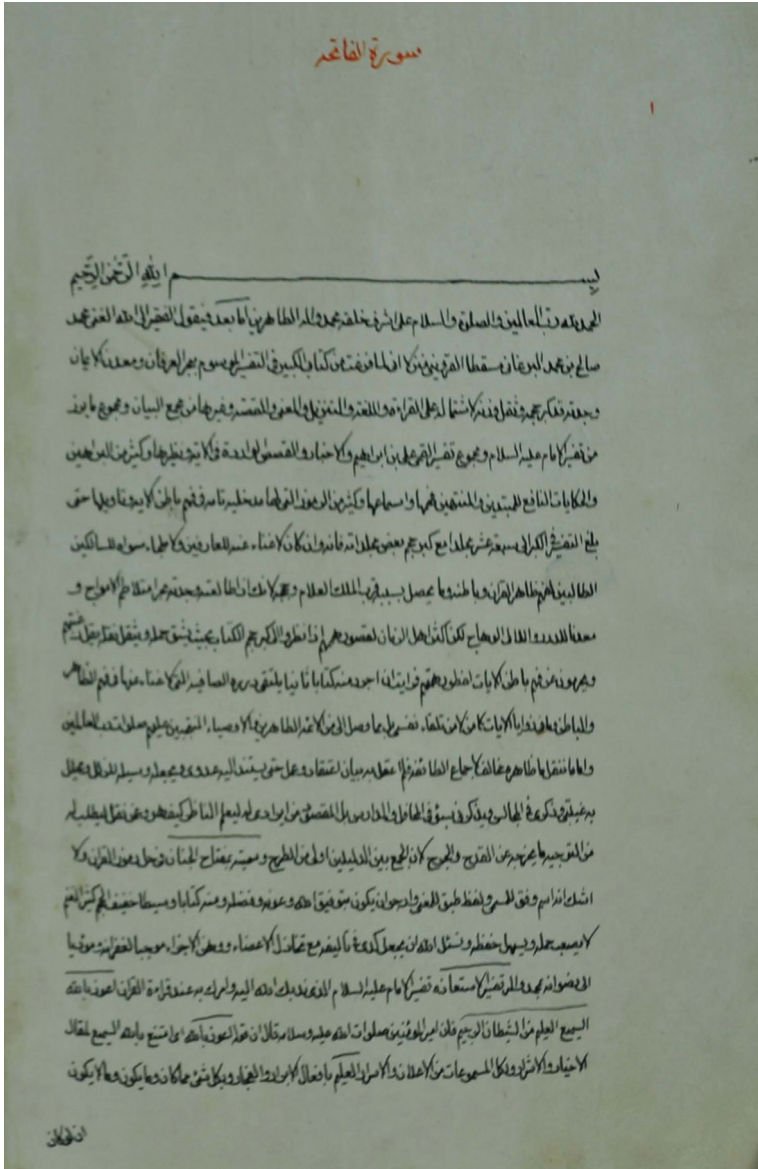 سورة الفاتحه
١
بسم الله الرحمن الرحيم
الحمد لله رب العالمين والصلوة والسلام على اشرف خلقه محمد واله الطاهرين اما بعد فيقول الفقير الى الله الغنى محمد
صالح بن محمد البرغانى مسقطا القزوينى انى لما فرغت من كتاب الكبير فى التفسير الموسوم ببحر العرفان ومعدن الايمان
وجدته قد كبر حجمه وثقل وزنه لاشتماله على القراءة واللغة والتنزيل والمعنى والقصة وغيرها من مجمع البيان ومجموع ما برز
من تفسير الامام عليه السلام ومجموع تفسير القمى على بن ابراهيم والاخبار والقصص الواردة فى الاية ونظيرها وكثير من البراهين
والحكايات النافع للمبتدين والمنتهين فهمها واسماعها وكثير من الرموز التى لها مدخلية تامه فى فهم باطن الاية وتاويلها حتى
بلغ التفسير الى سبعة عشر مجلدا مع كبر حجم بعض مجلداته فانه وان كان لا غناء عنه للعارفين والعلماء سواه للسالكين
الطالبين لفهم ظاهر القران وباطنه وما يحصل بسببه قرب الملك العلام لانك اذا طالعته وجدته بحرا متلاطم الامواج و
معدنا للدرر واللالى الوهاج لكن اكثر اهل الزمان لقصور هممهم اذا نظروا الى كبر حجم الكتاب بحيث يشق حمله ويثقل نقله
فى فهم باطن الايات فرايت ان اجرد منه كتابا ثانيا يلتقى درره الصافية التى لا غناء عنها فى فهم الظاهر
والباطن وما فى زوايا الايات كامن لا من تلقاء نفسى بل بما وصل الى من الائمة الطاهرين والاوصياء المنتجبين عليهم صلوات رب العالمين
واما ما ننقل ما ظاهره مخالف لاجماع الطائفة فلم انقله بيان اعتقاد وعمل حتى يستند اليه عدوى ويجعله وسيلة
فى المجالس ويذكرنى بسوء فى المحافل والمدارس بل المقصود من ايرادى له ليعلم الناظر كيف هو وعمن نقل ليطلب له
من التوجيه ما يخرجه عن القدح والجرح لان الجمع بين الدليلين اولى من الطرح وسميته بمفتاح الجنان فى حل رموز القران ولا
اشك انه اسم وفق المسمى ولفظ طبق المعنى وارجو ان يكون بتوفيق الله وعونه وفضله ومنه كتابا وسيطا خفيف الحجم كثير الغنم
لا يصعب حمله ويسهل حفظه ونسئل الله ان يجعل كدى فى تاليفه مع تخاذل الاعضاء ووهن الاجزاء موجبا لغفرانه ومؤديا
الى رضوانه بمحمد واله تفسير الاستعاذه تفسير الامام عليه السلام الذى ندبك الله اليه وامرك به عند قراءة القران اعوذ بالله
السميع العليم من الشيطان الرجيم فان امير المؤمنين صلوات الله عليه وسلامه قال ان قوله اعوذ بالله اى امتنع بالله السميع لمقال
الاخيار والاشرار ولكل المسموعات من الاعلان والاسرار العليم بافعال الابرار والفجار وبكل شئ مما كان وما يكون وما لا يكون
ان لو كان